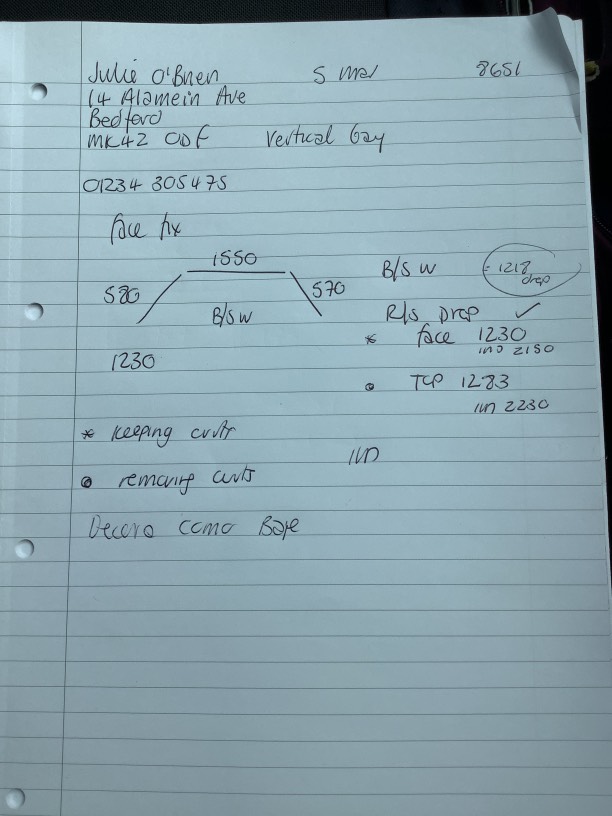 Julie O'Brien 5 mar 8651
14 Alamein Ave
Bedford
MK42 0DF Vertical bay
01234 305475
face fix
1550
580 570
B/S W
1230
B/S W = 1218 drop
R/S Drop ✓
* face 1230
2150
• TCP 1283
2230
* Keeping curts
• removing curts
Decora Como Bage